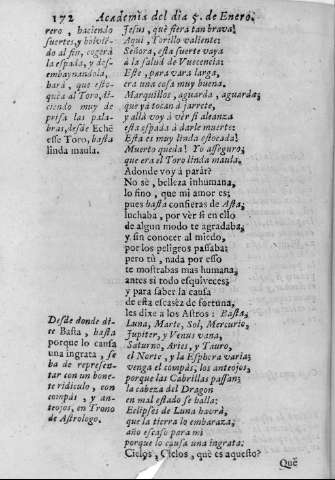 172 Academia del dia 5. de Enero.
rero, haciendo
suertes, y bolvien-
do al fin, cogerá
la espada, y des-
embaynandola,
hará, que esto-
quéa al Toro, di-
ciendo muy de
prisa las pala-
bras, desde Eché
esse Toro, hasta
linda maula.
Jesus, què fiera tan brava!
Aqui, Torillo valiente:
Señora, esta suerte vaya
à la salud de Vuecencia:
Este, para vara larga,
era una cosa muy buena.
Marquillos, aguarda, aguarda,
que yà tocan à jarrete,
y allà voy à vèr si alcanza
esta espada à darle muerte:
Esta es muy linda estocada!
Muerto queda! Yo asseguro,
que era el Toro linda maula.
Adonde voy à parár?
No sè, belleza inhumana,
lo fino, que mi amor es;
pues hasta confieras de Asta,
luchaba, por vèr si en ello
de algun modo te agradaba,
y sin conocer al miedo,
por los peligros passaba;
pero tù, nada por esso
te mostrabas mas humana,
antes si todo esquiveces;
y para saber la causa
de esta escasèz de fortuna,
les dixe à los Astros: Basta,
Desde donde di-
ce Basta, hasta
porque lo causa
una ingrata, se
ha de represen-
tar con un bone-
te ridiculo, con
compàs, y an-
teojos, en Trono
de Astrologo.
Luna, Marte, Sol, Mercurio,
Jupiter, y Venus vana,
Saturno, Aries, y Tauro,
el Norte, y la Esphera varia;
venga el compàs, los anteojos,
porque las Cabrillas passan;
la cabeza del Dragon
en mal estado se halla;
Eclipses de Luna havrà,
que la tierra lo embaraza;
año escaso para mi
porque lo causa una ingrata;
Cielos, Cielos, què es aquesto?
Què